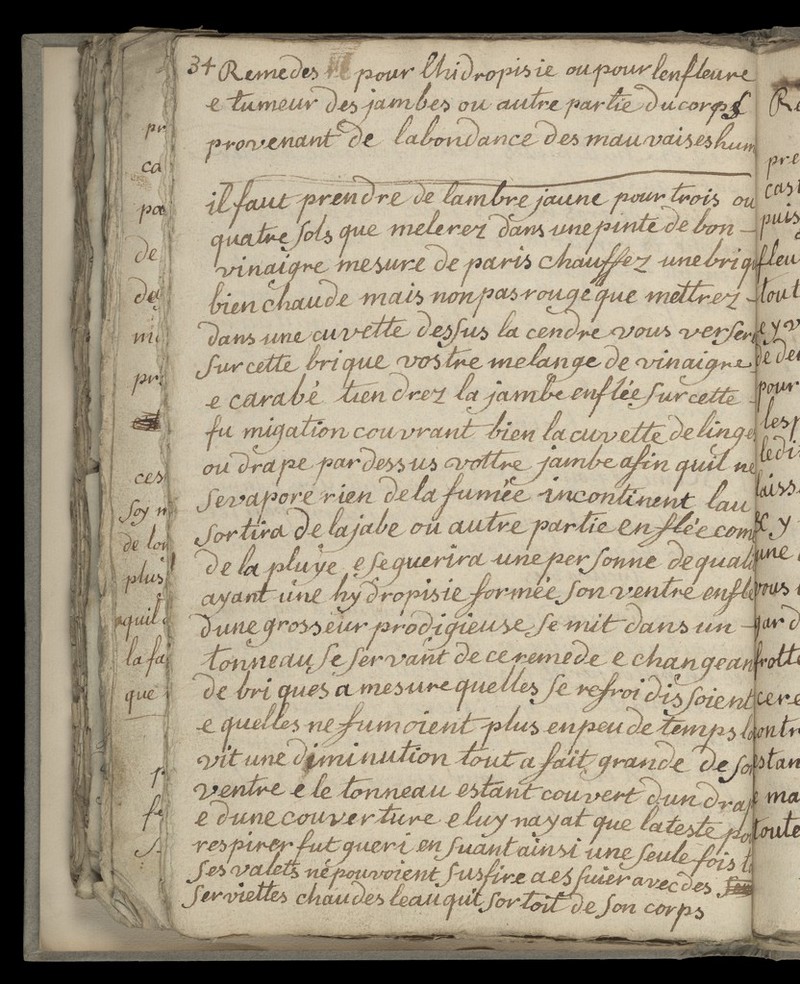 34 Remedes pour lhidropisie ou pour lenfleure
e tumeur des jambes ou autre partie du corps
provenant de labondance des mauvaises hum
il faut prendre de lambre jaune pour trois ou
quatre sols que melerez dans une pinte de bon -
vinaigre mesure de paris chauffez une briq
bien chaude mais non pas rouge que mettrez -
dans une cuvette dessus la cendre vous verser
sur cette brique vostre melange de vinaigre
e carabé tiendrez la jambe enflée sur cette
fumigation couvrant bien la cuvette de linge
ou drape par dessus vottre jambe afin quil ne
sevapore rien de la fumée incontinent lau
sortira de la jabe ou autre partie enflée com
de la pluye e se guerira une personne de quali
ayant une hydropisie formée son ventre enfle
dune grosseur prodigieuse se mit dans un -
tonneau se servant de ce remede e changean
de briques a mesure quelles se refroidissoient
e quelles ne fumoient plus en peu de temps lo
vit une diminution tout a fait grande de so
ventre e le tonneau estant couvert dun drap
e dune couverture e luy nayat que la teste po
respirer fut gueri en suant ainsi une seule fois
ses valets ne pouvoient susfire a essuier avec des
serviettes chaudes leau qui sortoit de son corps
pr
ca
pa
de
ni
pr
ces
soy n
de lon
plus
quil
la fa
que
Re
pre
cast
puis
fleu
tout
e y v
de der
pour
lesp
ledi
laiss
& y
une
vous
gar d
frotte
cere
ontr
estan
e ma
toute